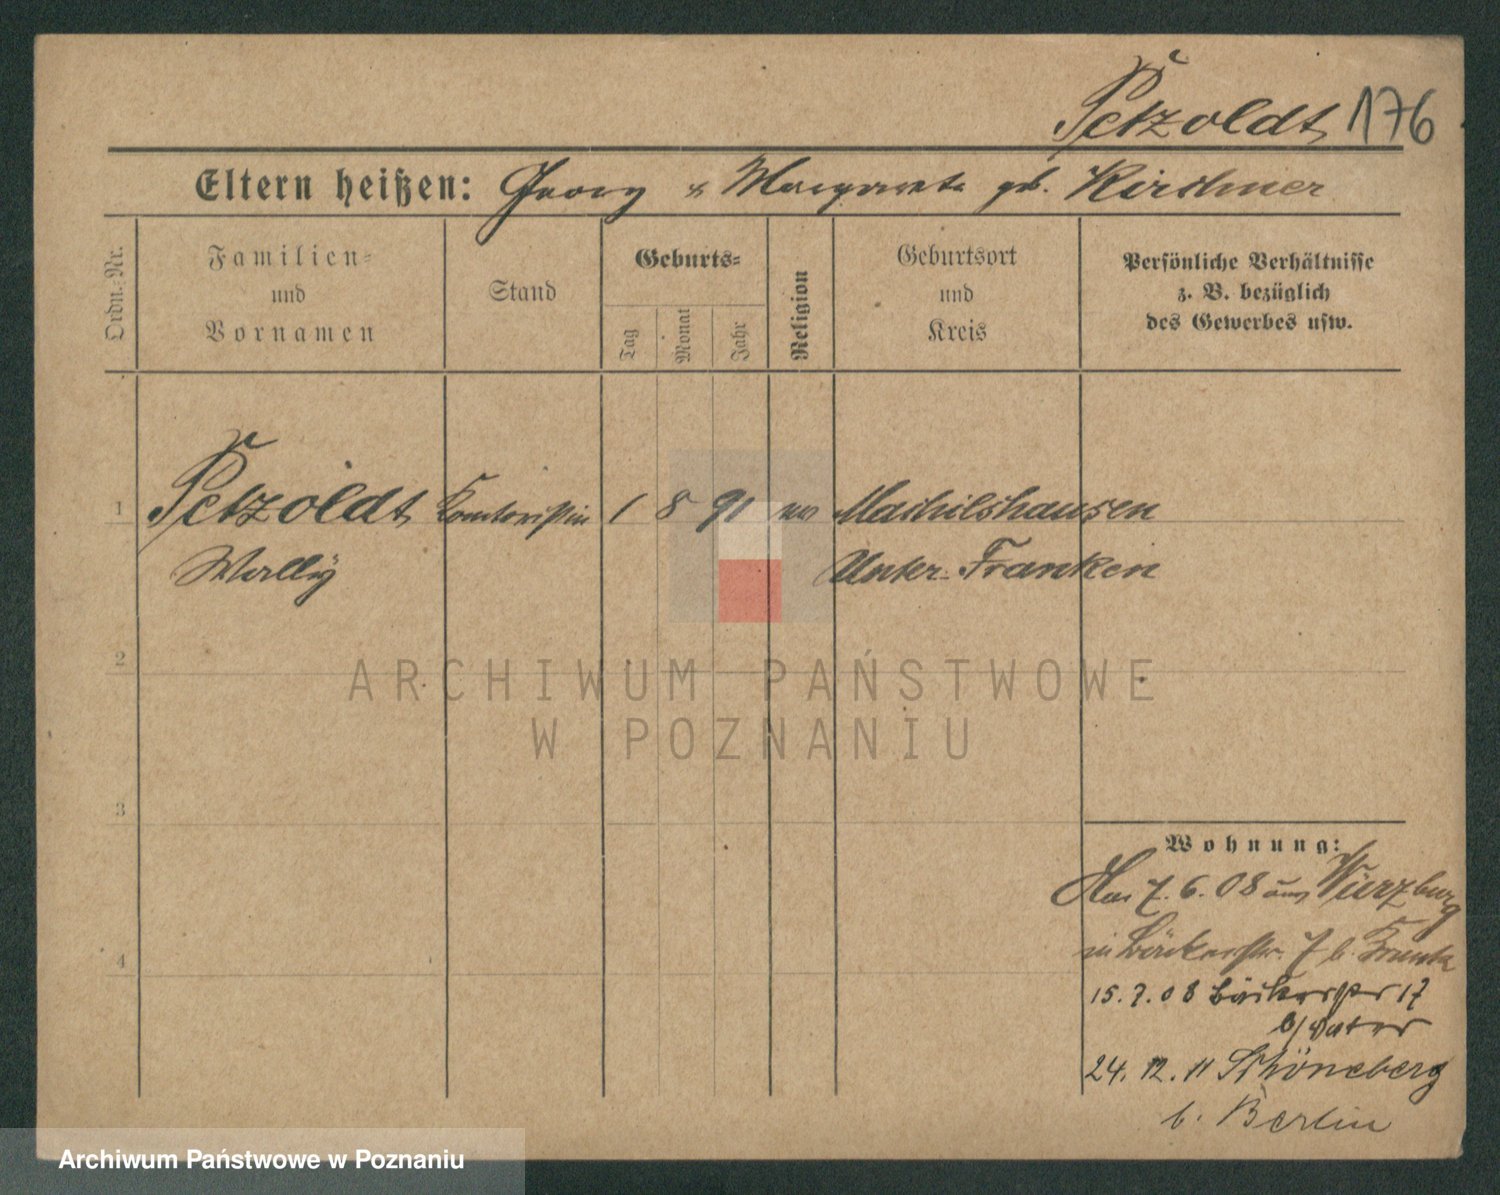 Petzoldt 176
Eltern heißen: Georg u Margareta geb. Kirchner
Ordn.-Nr.
Familien-
und
Vornamen
Stand
Geburts-
Tag
Monat
Jahr
Religion
Geburtsort
und
Kreis
Persönliche Verhältnisse
z. B. bezüglich
des Gewerbes usw.
1 Petzoldt Kontoristin 1 8 91 Maihilshausen
Wally Unter-Franken
2
ARCHIWUM PAŃSTWOWE
W POZNANIU
3
Wohnung:
7. 6. 08 aus Würzburg
in Bäckerstr. 7 b.
15. 7. 08 Bäckerstr 17
b/Vater
24. 12. 11 Schöneberg
b. Berlin
4
Archiwum Państwowe w Poznaniu